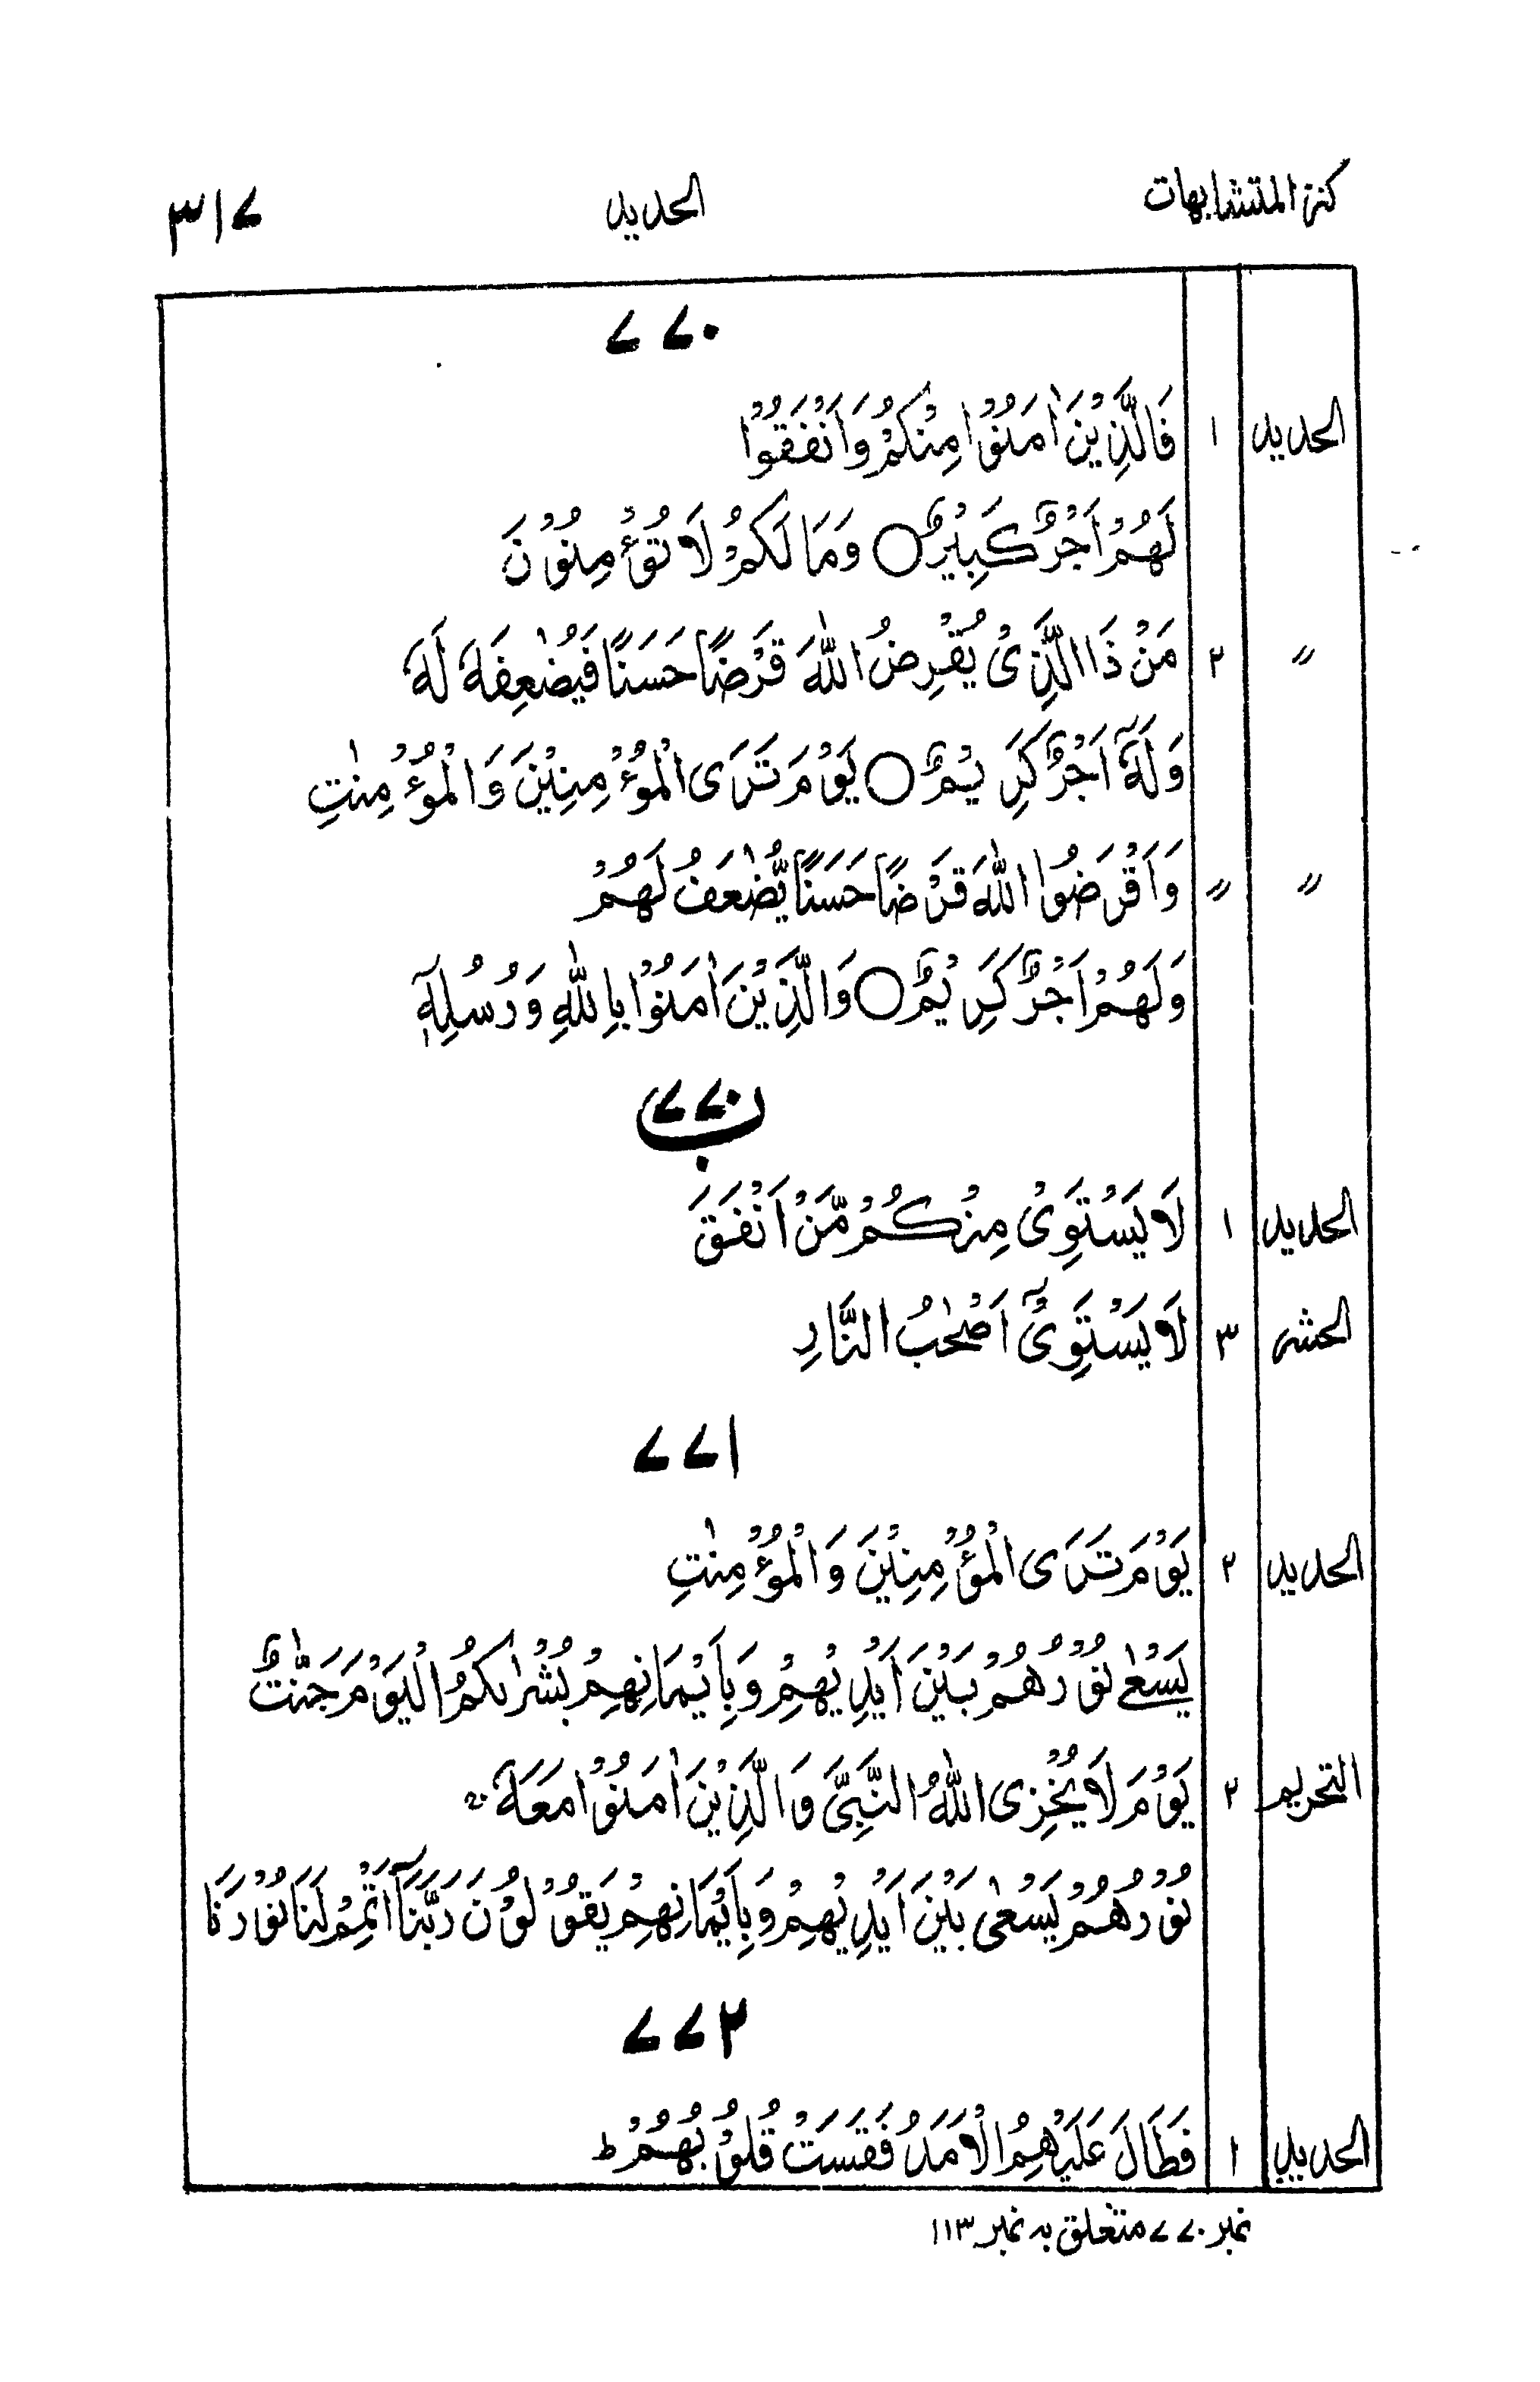 كنز المتشابهات الحديد ۳۱۷
۷۷۰
الحديد ۱ فَالَّذِيْنَ اٰمَنُوْا مِنْكُمْ وَاَنْفَقُوْا
لَهُمْ اَجْرٌ كَبِيْرٌ ○ وَمَا لَكُمْ لَا تُؤْمِنُوْنَ
〃 ۲ مَنْ ذَا الَّذِىْ يُقْرِضُ اللّٰهَ قَرْضًا حَسَنًا فَيُضٰعِفَهٗ لَهٗ
وَلَهٗٓ اَجْرٌ كَرِيْمٌ ○ يَوْمَ تَرَى الْمُؤْمِنِيْنَ وَالْمُؤْمِنٰتِ
〃 〃 وَاَقْرَضُوا اللّٰهَ قَرْضًا حَسَنًا يُّضٰعَفُ لَهُمْ
وَلَهُمْ اَجْرٌ كَرِيْمٌ ○ وَالَّذِيْنَ اٰمَنُوْا بِاللّٰهِ وَرُسُلِهٖٓ
۷۷۰ب
الحديد ۱ لَا يَسْتَوِىْ مِنْكُمْ مَّنْ اَنْفَقَ
الحشر ۳ لَا يَسْتَوِىْٓ اَصْحٰبُ النَّارِ
۷۷۱
الحديد ۲ يَوْمَ تَرَى الْمُؤْمِنِيْنَ وَالْمُؤْمِنٰتِ
يَسْعٰى نُوْرُهُمْ بَيْنَ اَيْدِيْهِمْ وَبِاَيْمَانِهِمْ بُشْرٰىكُمُ الْيَوْمَ جَنّٰتٌ
التحريم ۲ يَوْمَ لَا يُخْزِى اللّٰهُ النَّبِىَّ وَالَّذِيْنَ اٰمَنُوْا مَعَهٗ
نُوْرُهُمْ يَسْعٰى بَيْنَ اَيْدِيْهِمْ وَبِاَيْمَانِهِمْ يَقُوْلُوْنَ رَبَّنَآ اَتْمِمْ لَنَا نُوْرَنَا
۷۷۲
الحديد ۱ فَطَالَ عَلَيْهِمُ الْاَمَدُ فَقَسَتْ قُلُوْبُهُمْ ط
نمبر ۷۷۰ متعلق به نمبر ۱۱۳